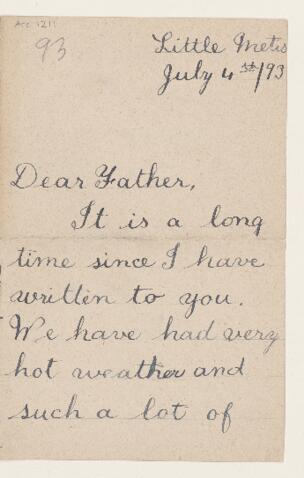 Acc 1211
93
Little Metis
July 4th/93
Dear Father,
It is a long
time since I have
written to you.
We have had very
hot weather and
such a lot of